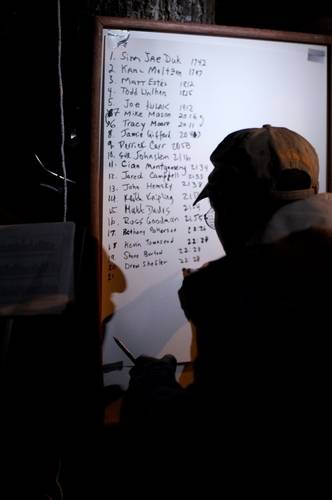 1. Sim Jae Duk 1742
2. Karl Meltzer 1787
3. Matt Estes 1812
4. Todd Walker 1825
5. Joe Kulak 1912
Mike Mason 2016
Tracy Moore 2011
8. Jamie Gifford
9. Derrick Carr 2058
10. Johnsten 2116
11. Cian Montgomery 2134
12. Jared Campbell 2133
13. John Hemsky 2138
14. Keith Knipling
15. Mark
16. Ross Goodman
17. Bethany Patterson
18 Kevin Townsend 22:28
19. Steve Barlow 22:28
20 Drew Sheffler 22:28
21